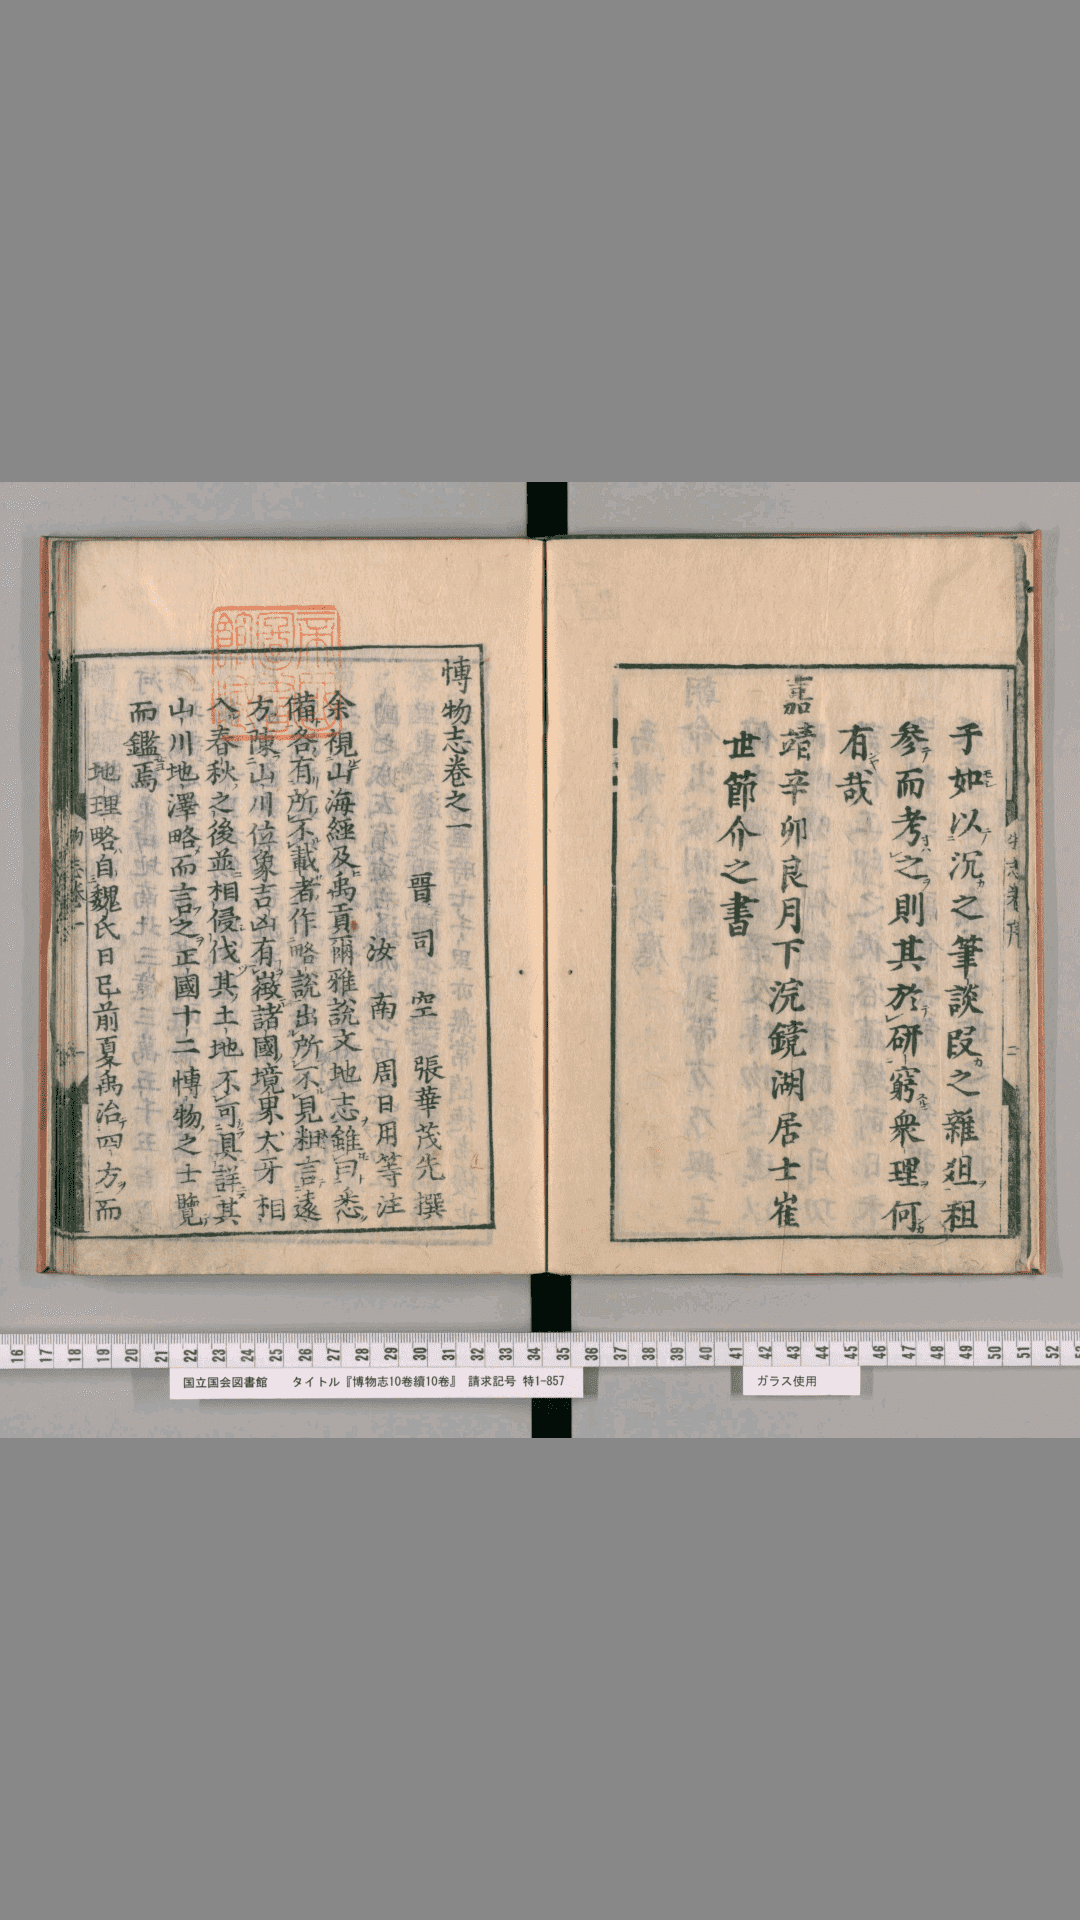 于如以沉之筆談叚之雜俎租
參而考之則其於研窮衆理何
有哉
嘉靖辛卯良月下浣鏡湖居士崔
世節介之書
博物志卷之一
晉司空張華茂先撰
汝南周日用等注
余視山海經及禹貢爾雅說文地志雖曰悉
備各有所不載者作略說出所不見粗言遠
方陳山川位象吉凶有徵諸國境界犬牙相
入春秋之後並相侵伐其土地不可具詳其
山川地澤略而言之正國十二博物之士覽
而鑑焉
地理略自魏氏日已前夏禹治四方而
16 17 18 19 20 21 22 23 24 25 26 27 28 29 30 31 32 33 34 35 36 37 38 39 40 41 42 43 44 45 46 47 48 49 50 51 52
国立国会図書館 タイトル『博物志10巻續10巻』 請求記号 特1-857
ガラス使用